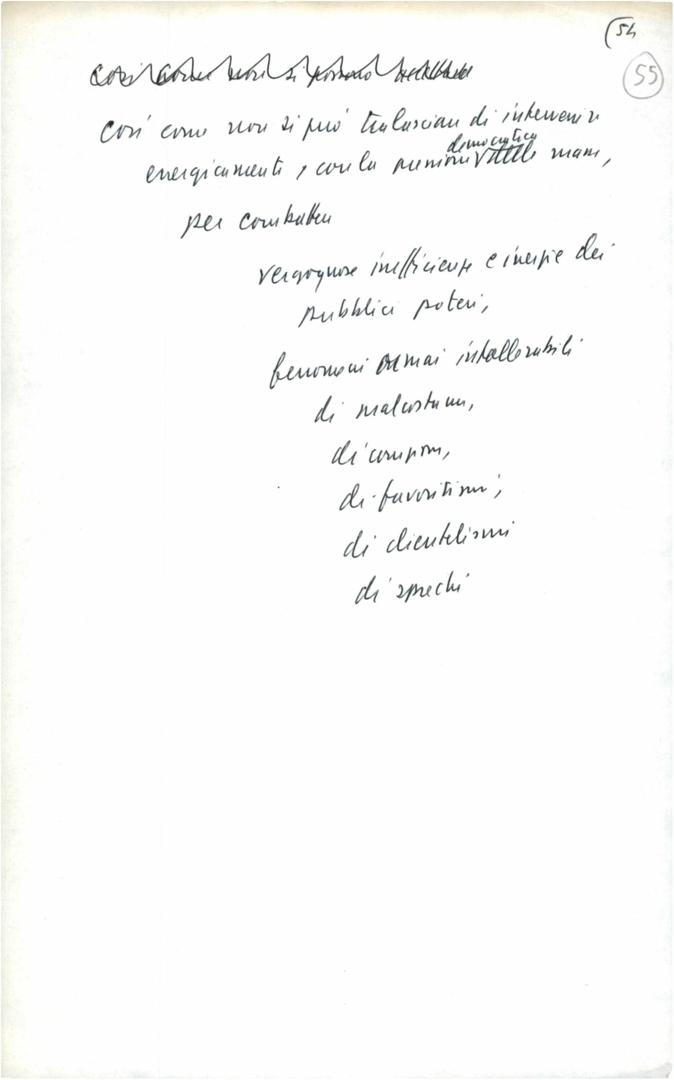 54
55
così come non si possono
così come non si può tralasciare di intervenire
energicamente, con la pressione democratica delle masse,
per combattere
vergognose inefficienze e inerzie dei
pubblici poteri,
fenomeni ormai intollerabili
di malcostume,
di corruzione,
di favoritismi,
di clientelismi
di sprechi